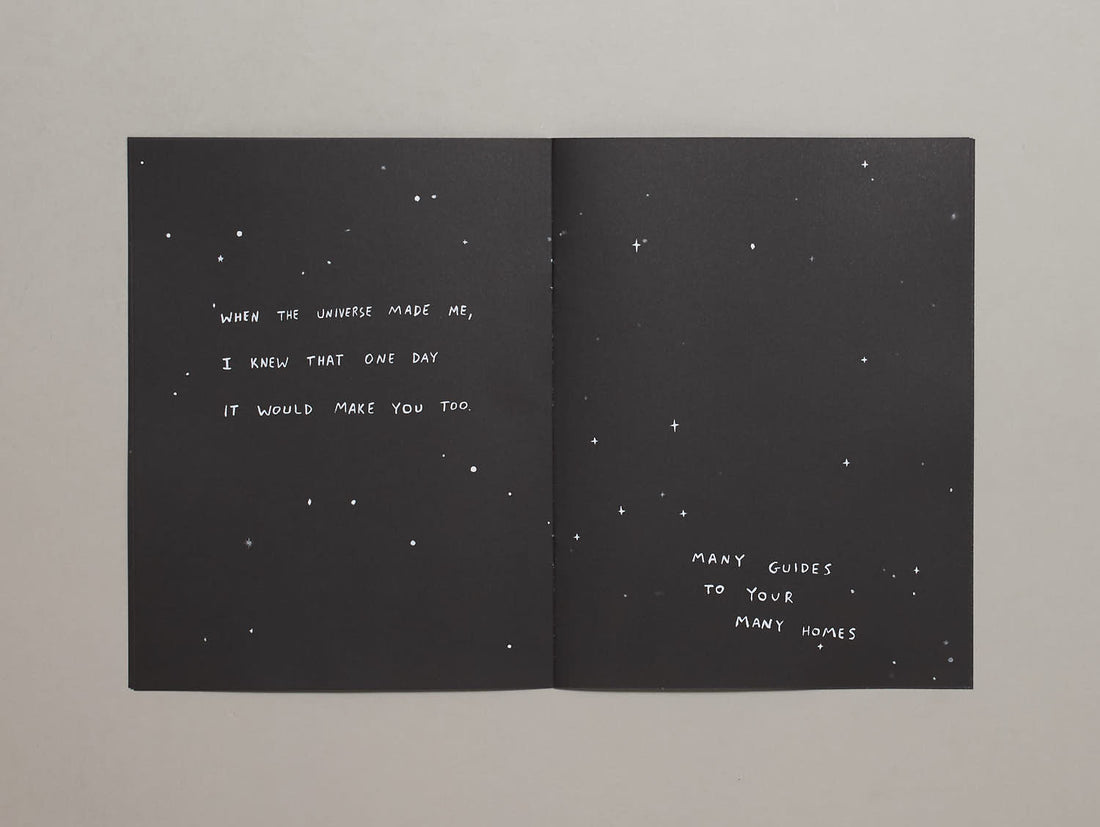 WHEN THE UNIVERSE MADE ME,
I KNEW THAT ONE DAY
IT WOULD MAKE YOU TOO.
MANY GUIDES
TO YOUR
MANY HOMES